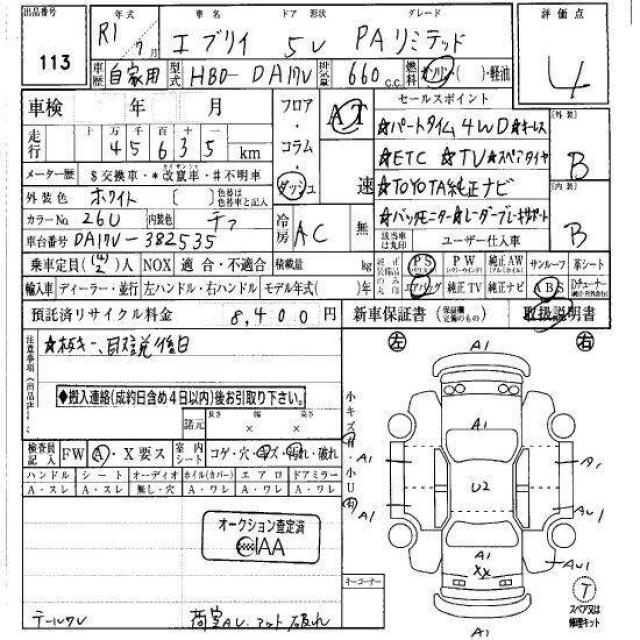 出品番号 年式 車名 ドア 形状 グレード 評価点
113 R1 7月 エブリイ 5V PAリミテッド 4
車歴 自家用 型式 HBD-DA17V 排気量 660 c.c. 燃料 ガソリン・( )・軽油
車検 年 月 フロア・コラム・ダッシュ AT 速 セールスポイント [外装] B
走行 十 万 千 百 十 一 4 5 6 3 5 km
★パートタイム4WD★キーレス
★ETC ★TV★スペアタイヤ
メーター歴 $交換車・*改竄車・#不明車
★TOYOTA純正ナビ [内装] B
外装色 ホワイト [ ] 色替は色替車と記入
★バックモニター★レーダーブレーキサポート
カラーNo. 26U 内装色 チャ 冷房 AC 無 該当車は丸印 ユーザー仕入車
車台番号 DA17V-382535
乗車定員(4/2)人 NOX 適合・不適合 積載量 kg 純正装備品のみ丸印 PS PW 純正AW サンルーフ 革シート
輸入車 ディーラー・並行 左ハンドル・右ハンドル モデル年式( )年 エアバッグ 純正TV 純正ナビ ABS Dチューナー
預託済リサイクル料金 8,400 円 新車保証書 (保証欄完備のもの) 取扱説明書
注意事項
◆搬入連絡(成約日含め4日以内)後お引取り下さい。
諸元 長さ 幅 高さ × ×
検査員記入 FW A・X要ス 室内シート コゲ・穴・キズ・汚れ・破れ
ハンドル シート オーディオ ホイル(カバー) エアロ ドアミラー
A・スレ A・スレ 無し・穴 A・ワレ A・ワレ A・ワレ
オークション査定済
IAA
テールワレ
荷室AU.マット破れ
キーコーナー
左 右
小キズ 有
小U 有
A1
A1
A1 A1
U2
A1 AU1
A1
XX AU1
A1
T
スペア又は修理キット